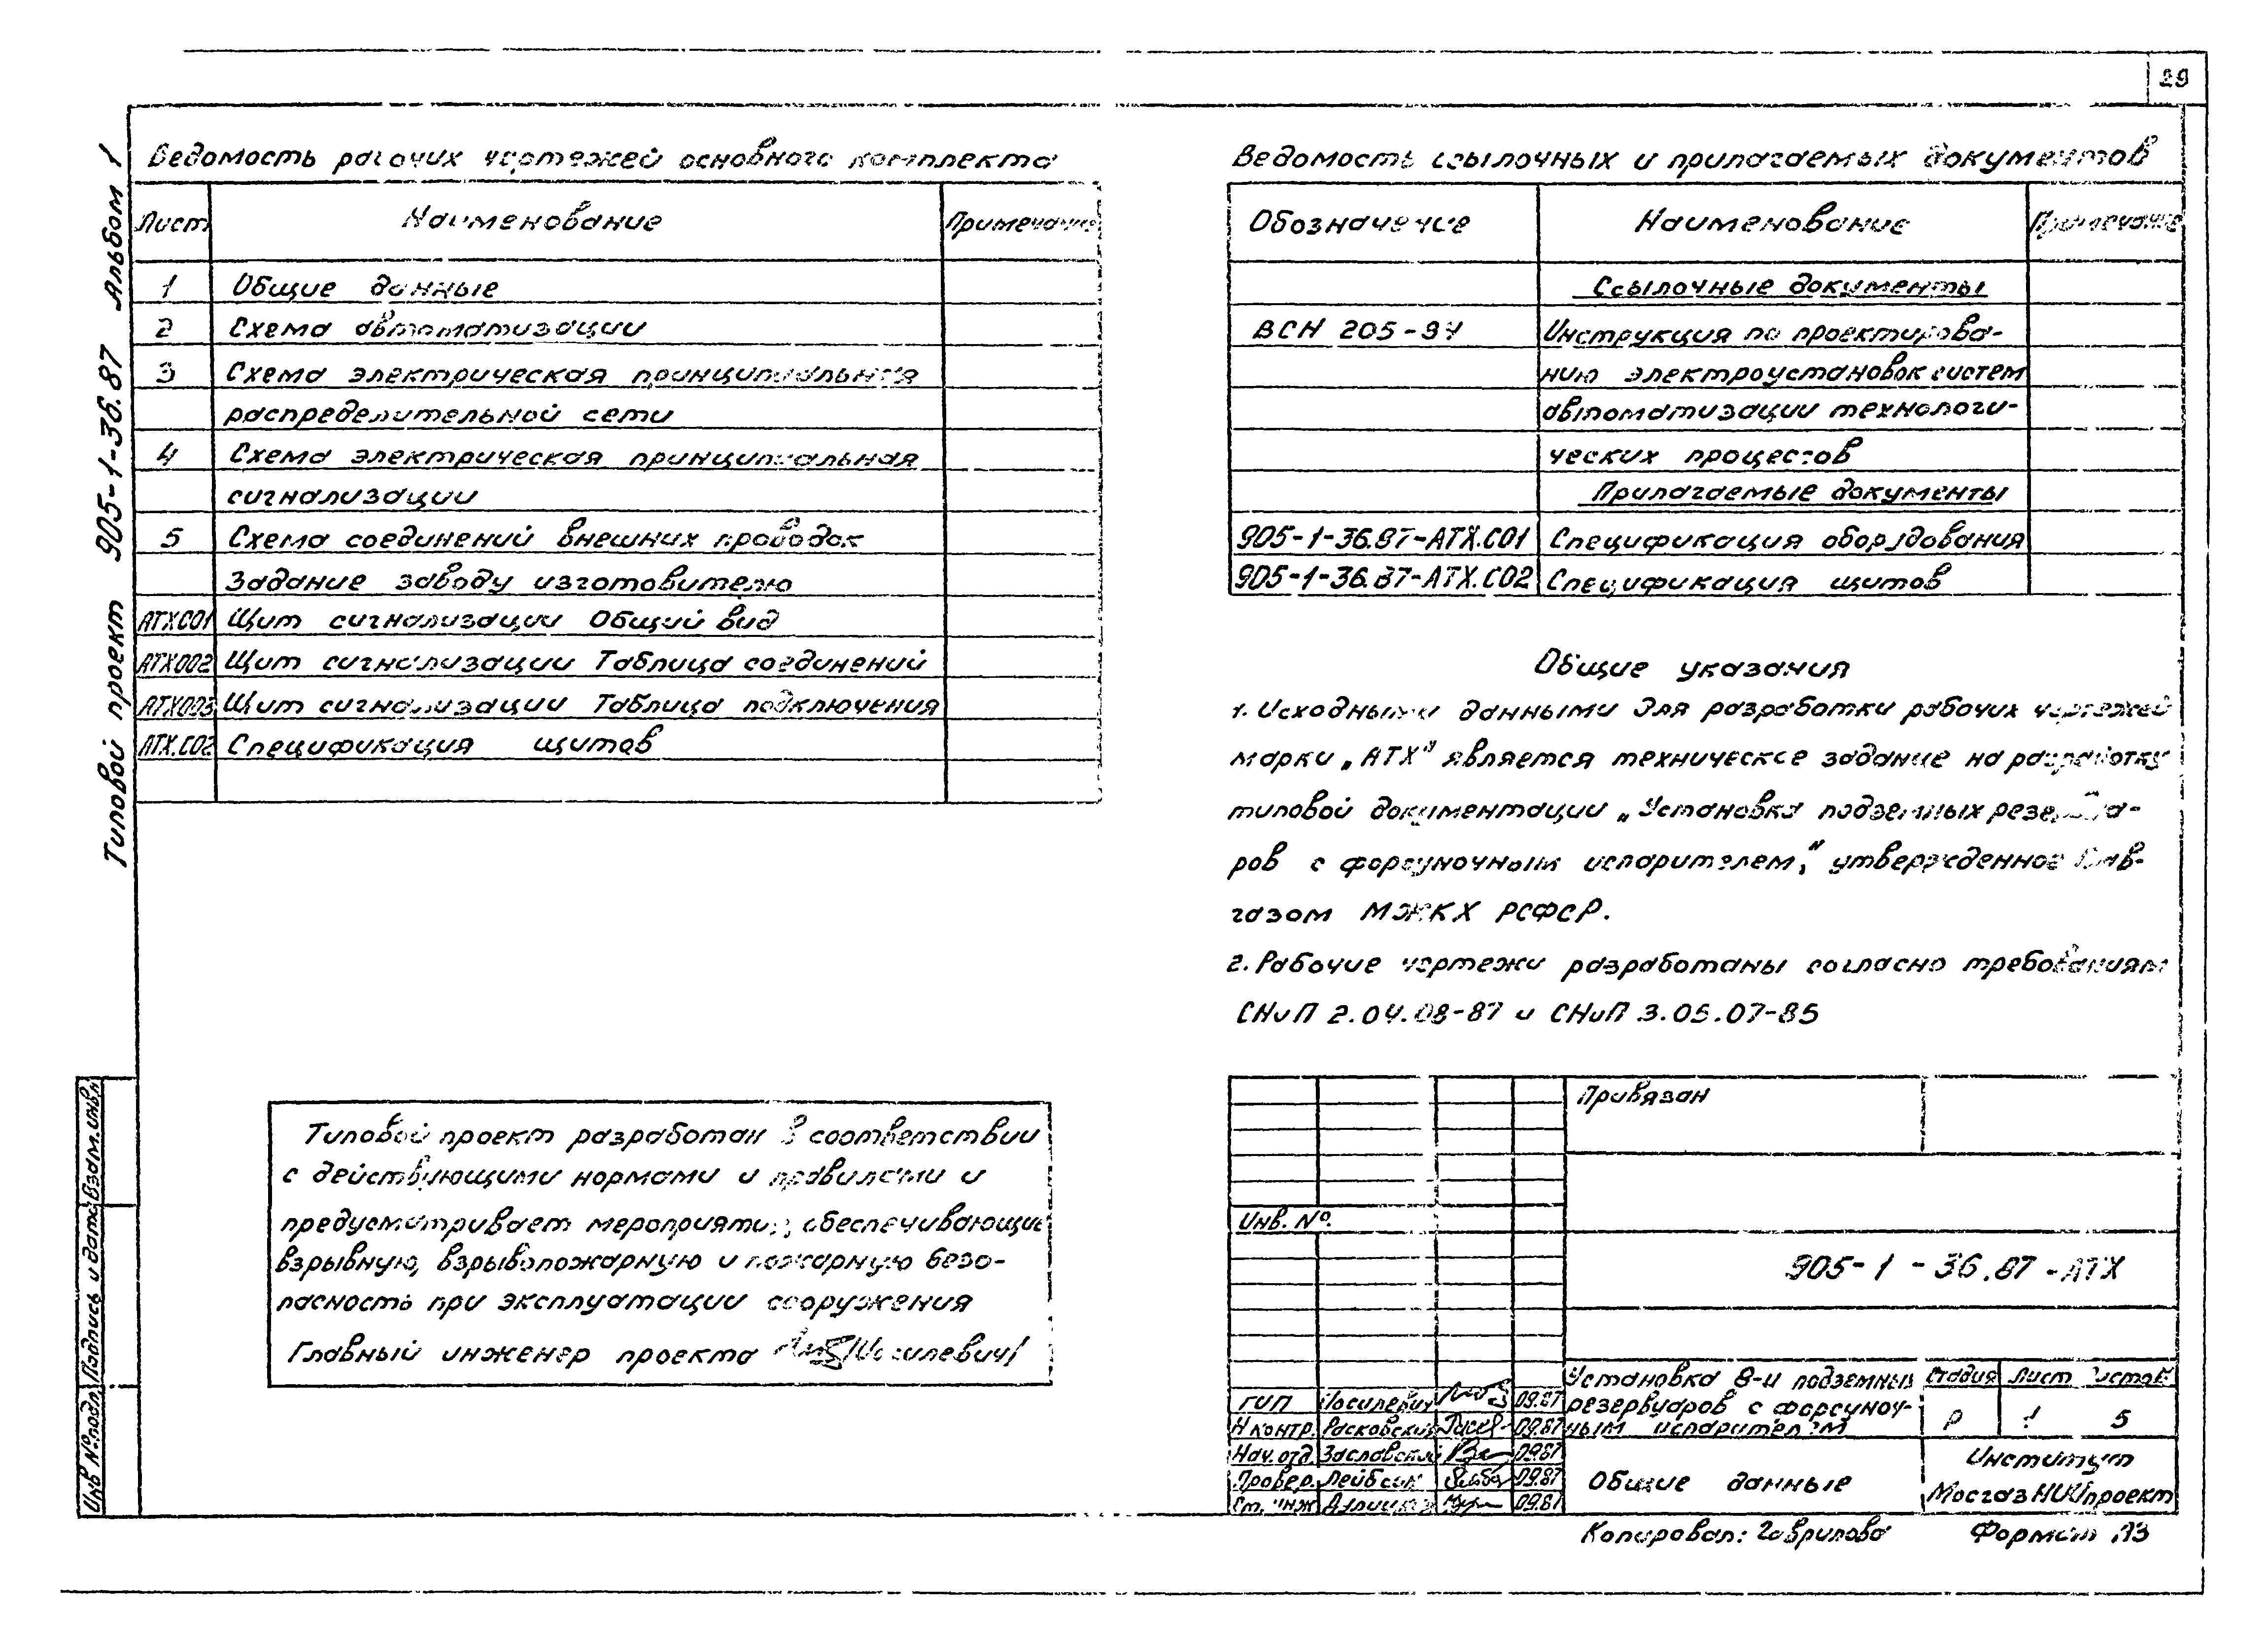 29
Типовой проект 905-1-36.87 Альбом 1
Ведомость рабочих чертежей основного комплекта
Лист Наименование Примечание
1 Общие данные
2 Схема автоматизации
3 Схема электрическая принципиальная
распределительной сети
4 Схема электрическая принципиальная
сигнализации
5 Схема соединений внешних проводок
Задание заводу изготовителю
АТХ001 Щит сигнализации Общий вид
АТХ002 Щит сигнализации Таблица соединений
АТХ003 Щит сигнализации Таблица подключения
АТХ.СО2 Спецификация щитов
Ведомость ссылочных и прилагаемых документов
Обозначение Наименование Примечание
Ссылочные документы
ВСН 205-84 Инструкция по проектирова-
нию электроустановок систем
автоматизации технологи-
ческих процессов
Прилагаемые документы
905-1-36.87-АТХ.СО1 Спецификация оборудования
905-1-36.87-АТХ.СО2 Спецификация щитов
Общие указания
1. Исходными данными для разработки рабочих чертежей
марки „АТХ" является техническое задание на разработку
типовой документации „Установка подземных резервуа-
ров с форсуночным испарителем," утвержденное Глав-
газом МЖКХ РСФСР.
2. Рабочие чертежи разработаны согласно требованиям
СНиП 2.04.08-87 и СНиП 3.05.07-85
Типовой проект разработан в соответствии
с действующими нормами и правилами и
предусматривает мероприятия, обеспечивающие
взрывную, взрывопожарную и пожарную безо-
пасность при эксплуатации сооружения
Главный инженер проекта /Иосилевич/
Инв № подл. Подпись и дата Взам. инв. №
Привязан
Инв. №.
905-1-36.87-АТХ
Установка 8-и подземных
резервуаров с форсуноч-
ным испарителем
Стадия Лист Листов
Р 1 5
ГИП Иосилевич 09.87
Н контр. Расковский 09.87
Нач. отд. Заславский 09.87
Провер. Лейбсон 09.87
Ст. инж 09.87
Общие данные
Институт
МосгазНИИпроект
Копировал: Гаврилова Формат А3